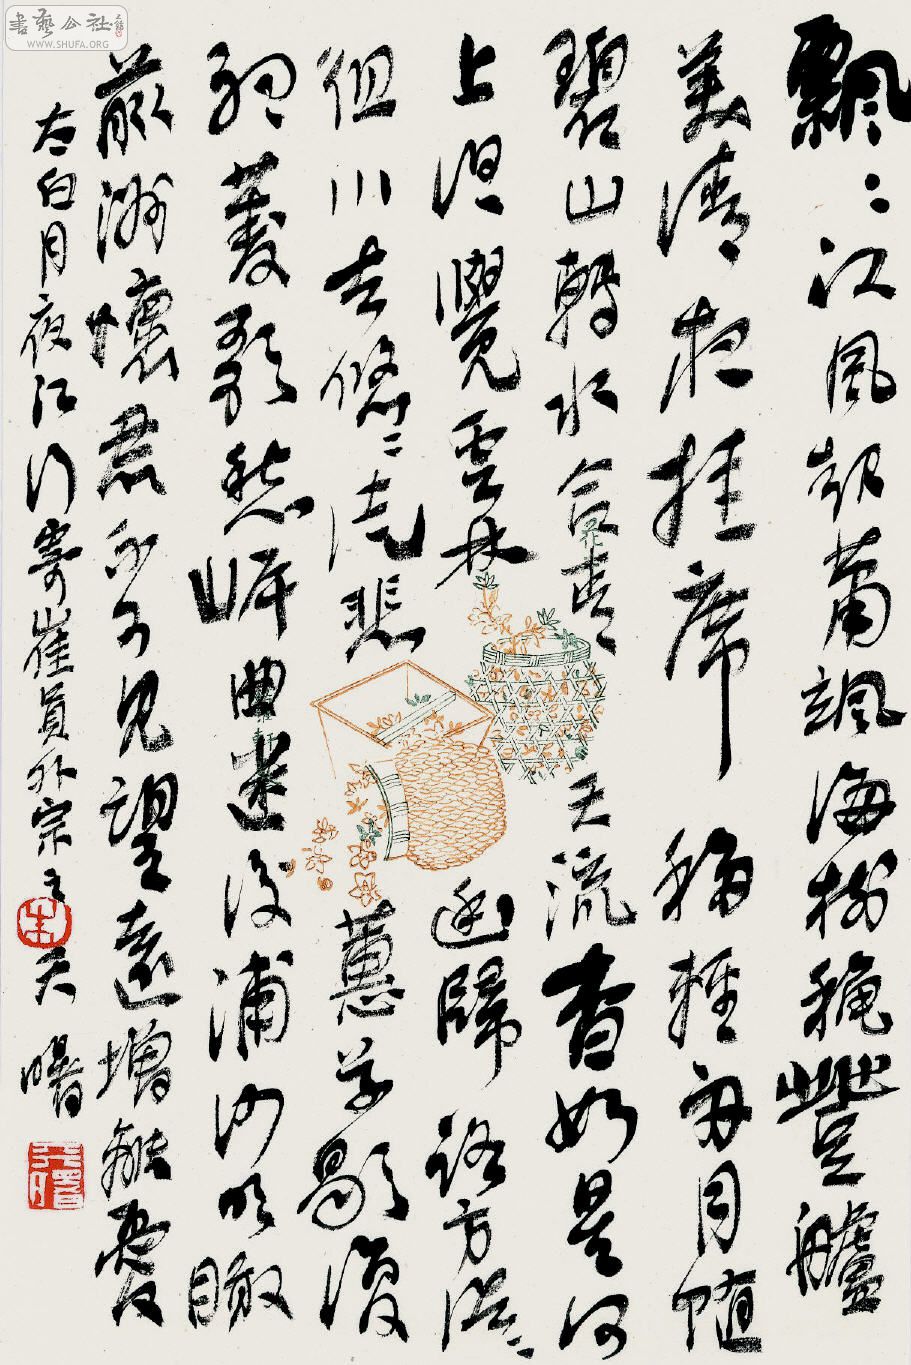 書藝公社
WWW.SHUFA.ORG
飄〻江風起蕭颯海樹穐登艫
美清夜挂席移輕舟月随
碧山轉水合青天流杳如星河
上但覺雲林幽歸路方浩〻
徂川去悠〻徒悲蕙草歇復
聽菱歌愁岸曲迷後浦沙明瞰
前洲懷君不可見望遠增離憂
太白月夜江行寄崔員外宗之 天曙
朱